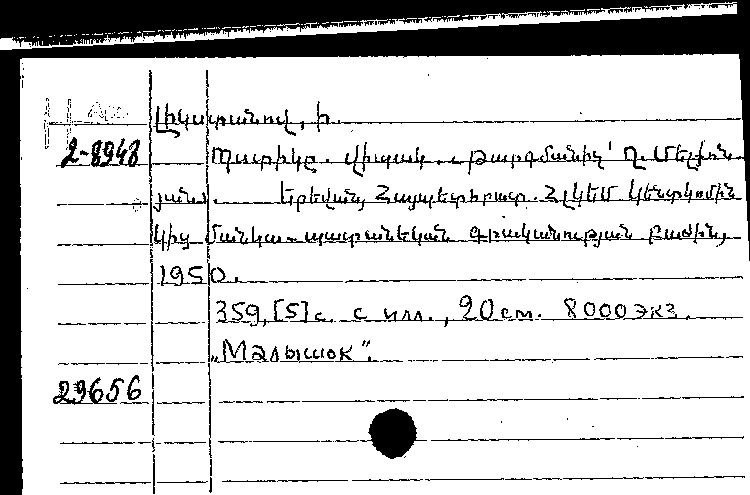 Арм
Լիխատանով, Ի.
2-8948 Պատիկը. Վիպակ. Թարգմանիչ՝ Ղ. Մելիոն-
յանս. Երեվան, Հայպետհրատ. ՀԼԿԵՄ Կենտկոմին
կից մանկա-պատանեկան գրականության բաժին,
1950.
359, [5] с. с илл., 20 см. 8000 экз.
„Малышок“.
29656